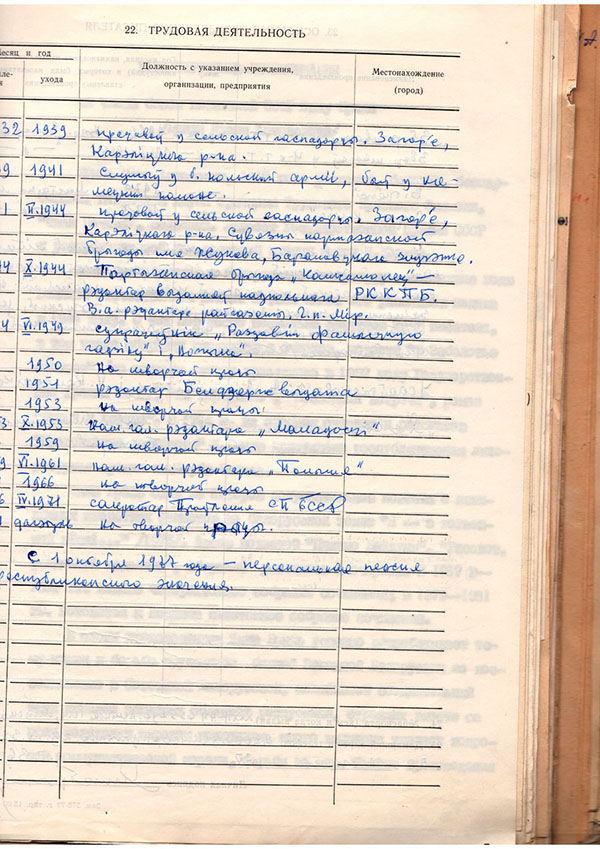 22. ТРУДОВАЯ ДЕЯТЕЛЬНОСТЬ
есяц и год
ухода
Должность с указанием учреждения,
организации, предприятия
Местонахождение
(город)
32 1939 працаваў у сельскай гаспадарцы. Загор'е,
Карэліцкага р-на.
9 1941 Служыў у б. польскай арміі, быў у ня-
мецкім палоне.
1 II.1944 працаваў у сельскай гаспадарцы. Загор'е,
Карэліцкага р-на. Сувязны партызанскай
брыгады імя Жукава, Баранавіцкага злучэння.
44 X.1944 Партызанская брыгада „Камсамолец" —
рэдактар выданняў падпольнага РККПБ.
В.а. рэдактара райгазеты. Г.п. Мір.
4 VI.1949 супрацоўнік „Раздавім фашысцкую
гадзіну" і „Вожыка".
1950 На творчай працы
1951 рэдактар Белдзяржвыдата
1953 на творчай працы
3 X.1953 нам. гал. рэдактара „Маладосці"
1959 на творчай працы
9 VI.1961 нам. гал. рэдактара „Полымя"
1966 на творчай працы
6 IV.1971 сакратар Праўлення СП БССР
1 на творчай працы.
С 1 октября 1977 года — персональная пенсия
республиканского значения.